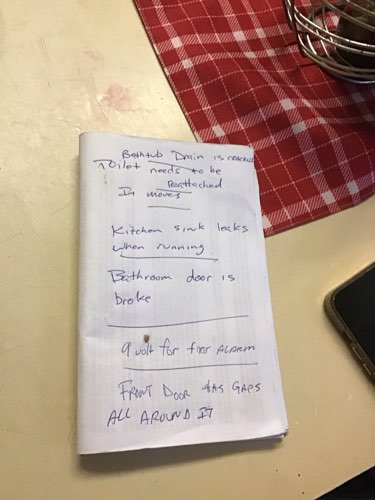 Bathtub Drain is cracked
Toilet needs to be
Reattached
It moves
Kitchen sink leaks
when running
Bathroom door is
broke
9 volt for fire ALARM
FRONT DOOR HAS GAPS
ALL AROUND IT